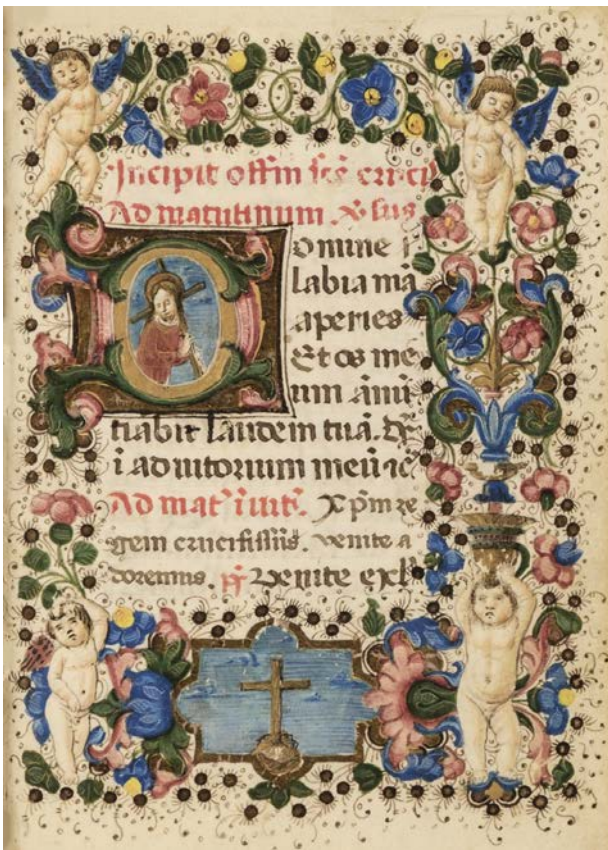 Incipit offm̄ scē cruci
Ad matutinum. ℣sus
Domine ī
labia mā
aperies
Et os me
um ānū
tiābit laudem tuā. D̄s
ī adiutorium meū
Ad mat' īvit'. Xp̄m re
gem venite a
doremus. Venite exl